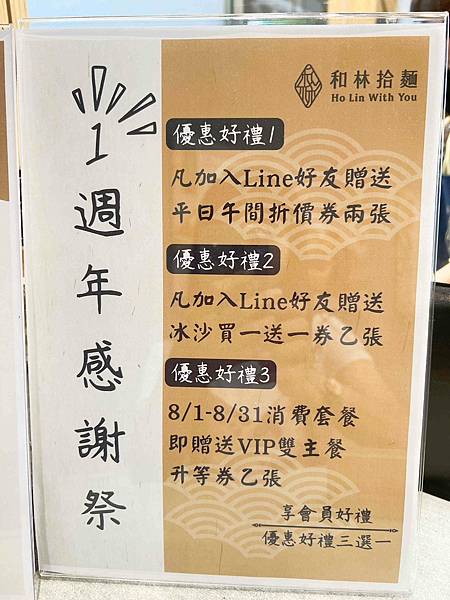 和林拾麵
Ho Lin With You
1週年感謝祭
優惠好禮1
凡加入Line好友贈送
平日午間折價券兩張
優惠好禮2
凡加入Line好友贈送
冰沙買一送一券乙張
優惠好禮3
8/1-8/31消費套餐
即贈送VIP雙主餐
升等券乙張
享會員好禮
優惠好禮三選一